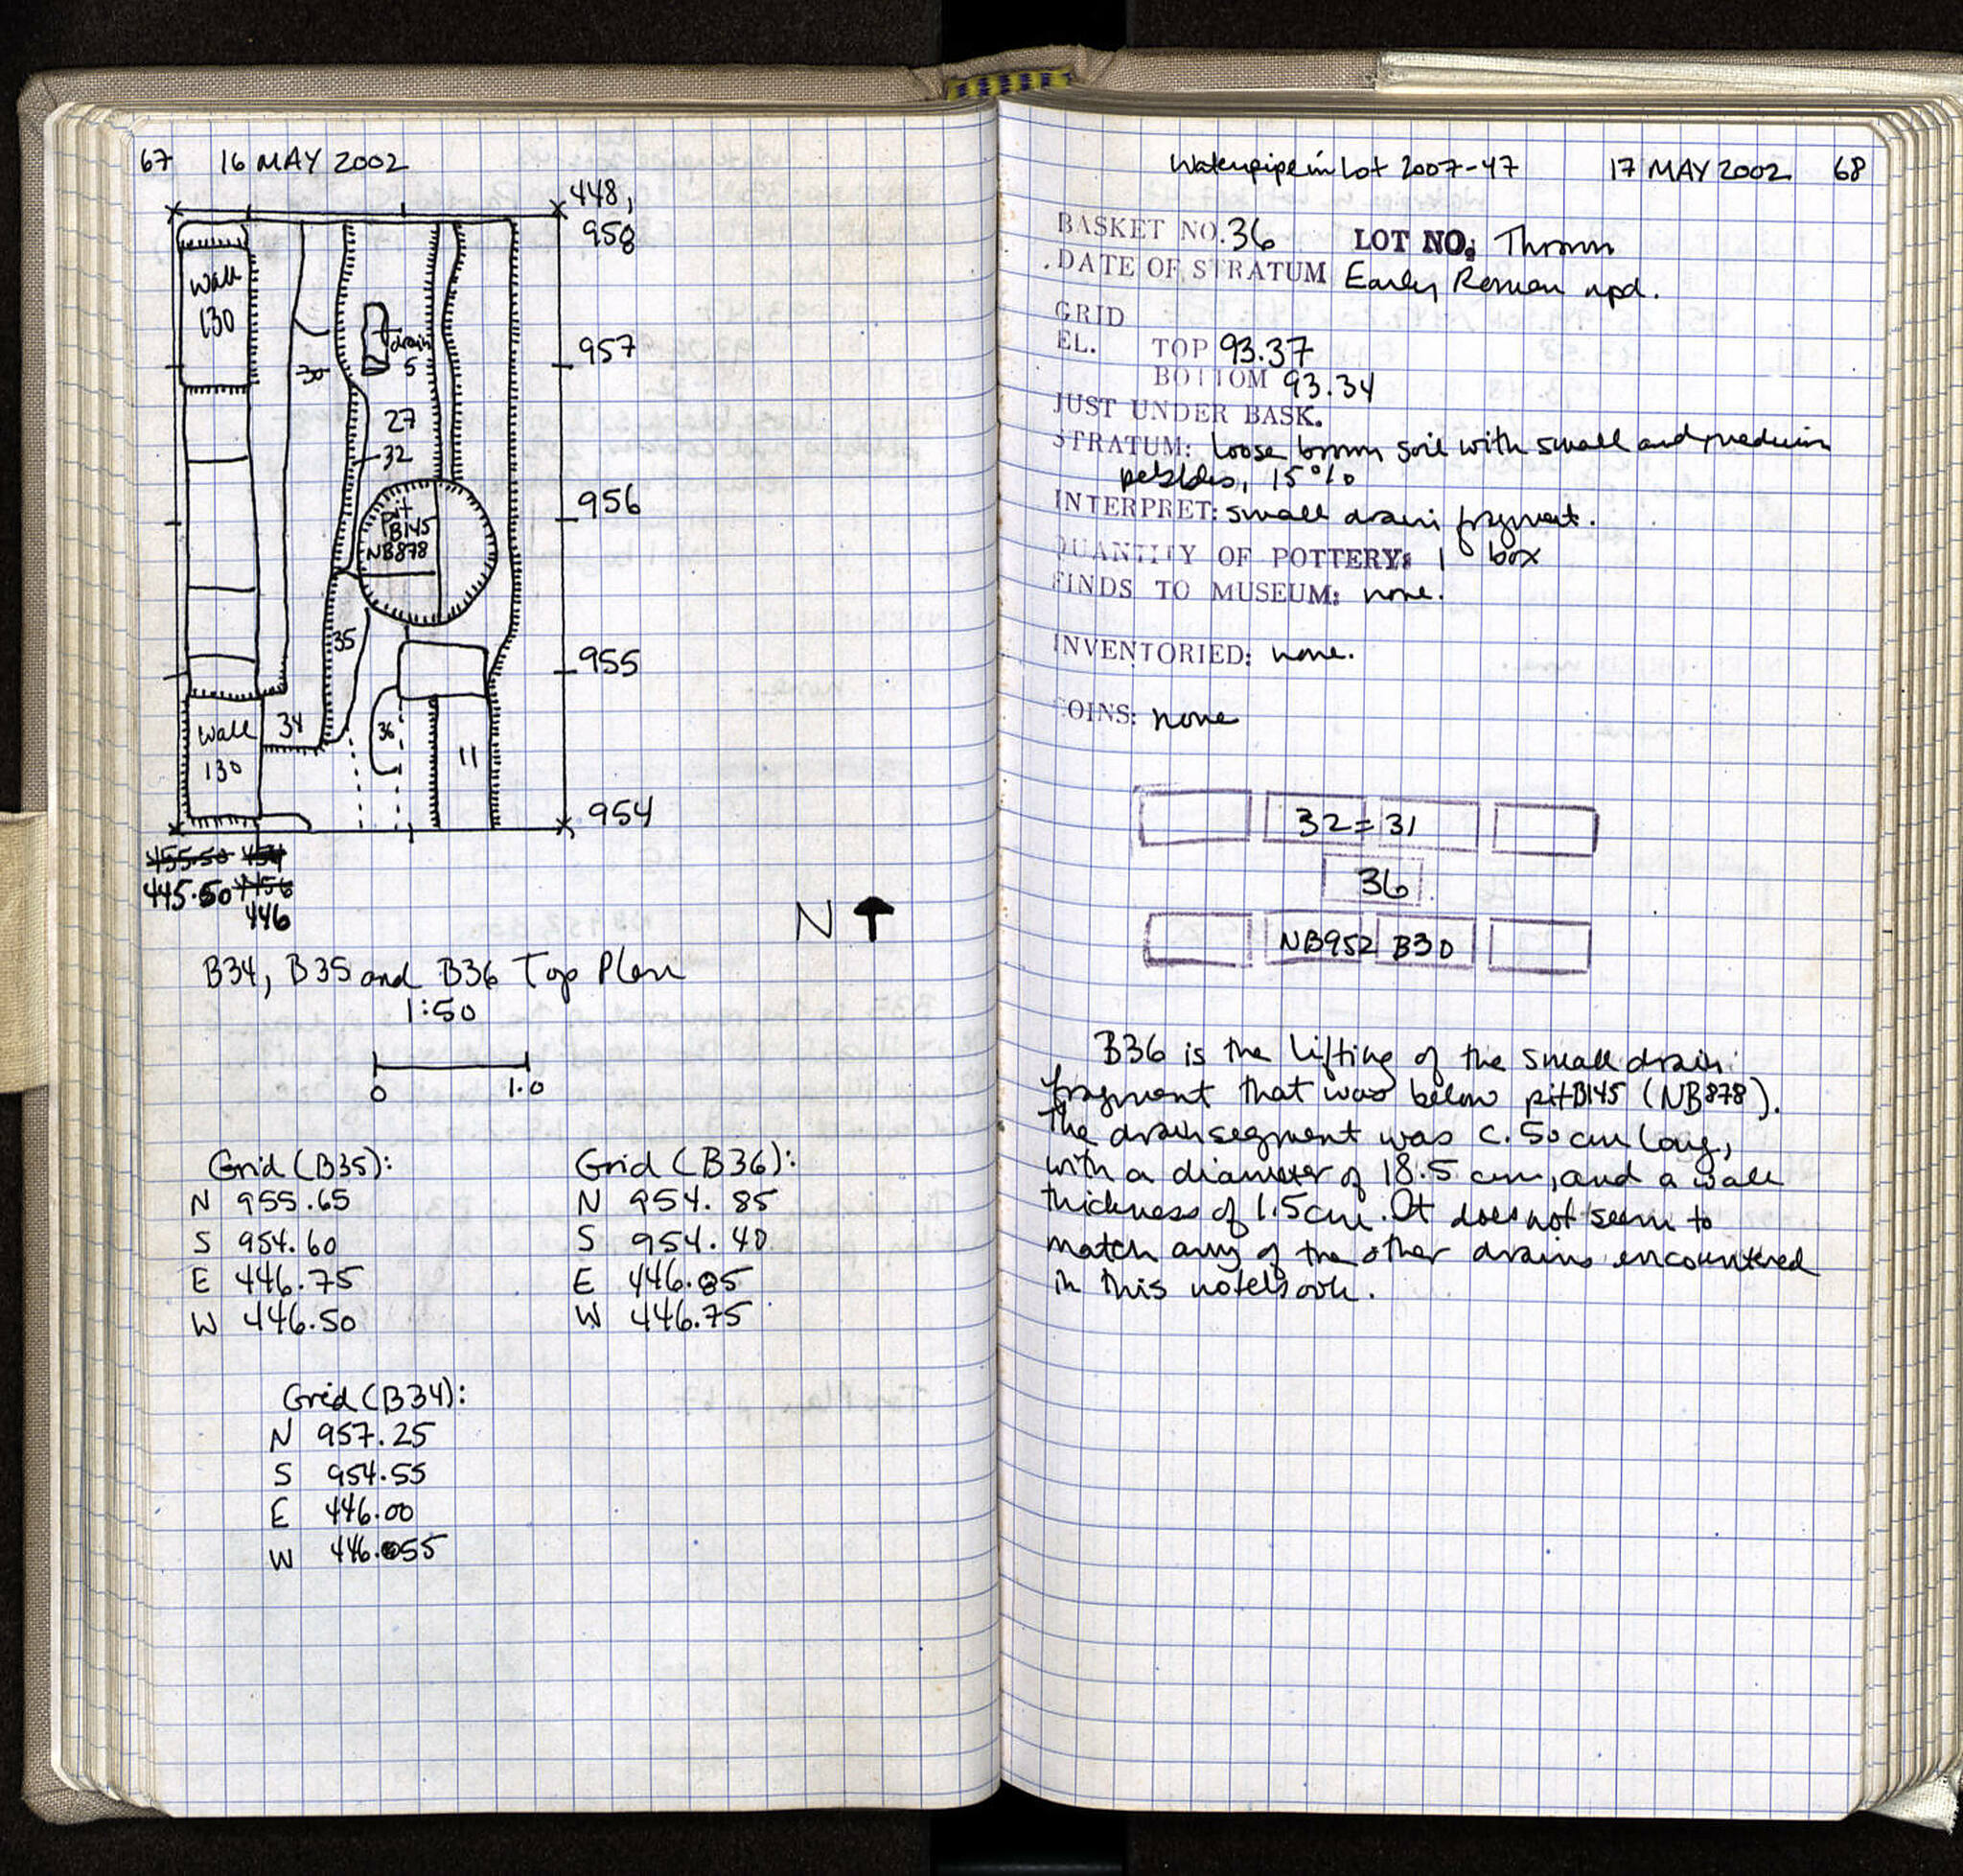 67 16 MAY 2002
448,
958
Wall
130
drain
5
957
30
27
32
956
pit
B145
NB878
35
955
34
36
11
Wall
130
954
455.50 454
445.50 456
446
N
B34, B35 and B36 Top Plan
1:50
0 1.0
Grid (B35): Grid (B36):
N 955.65 N 954.85
S 954.60 S 954.40
E 446.75 E 446.85
W 446.50 W 446.75
Grid (B34):
N 957.25
S 954.55
E 446.00
W 446.055
Waterpipe in Lot 2007-47 17 MAY 2002 68
BASKET NO. 36 LOT NO: Thrown
DATE OF STRATUM Early Roman npd.
GRID
EL. TOP 93.37
BOTTOM 93.34
JUST UNDER BASK.
STRATUM: loose brown soil with small and medium
pebbles, 15%
INTERPRET: small drain fragment.
QUANTITY OF POTTERY: 1 box
FINDS TO MUSEUM: none.
INVENTORIED: none.
COINS: none
32 = 31
36
NB952 B30
B36 is the lifting of the small drain
fragment that was below pit B145 (NB878).
The drain segment was c. 50 cm long,
with a diameter of 18.5 cm, and a wall
thickness of 1.5cm. It does not seem to
match any of the other drains encountered
in this notebook.